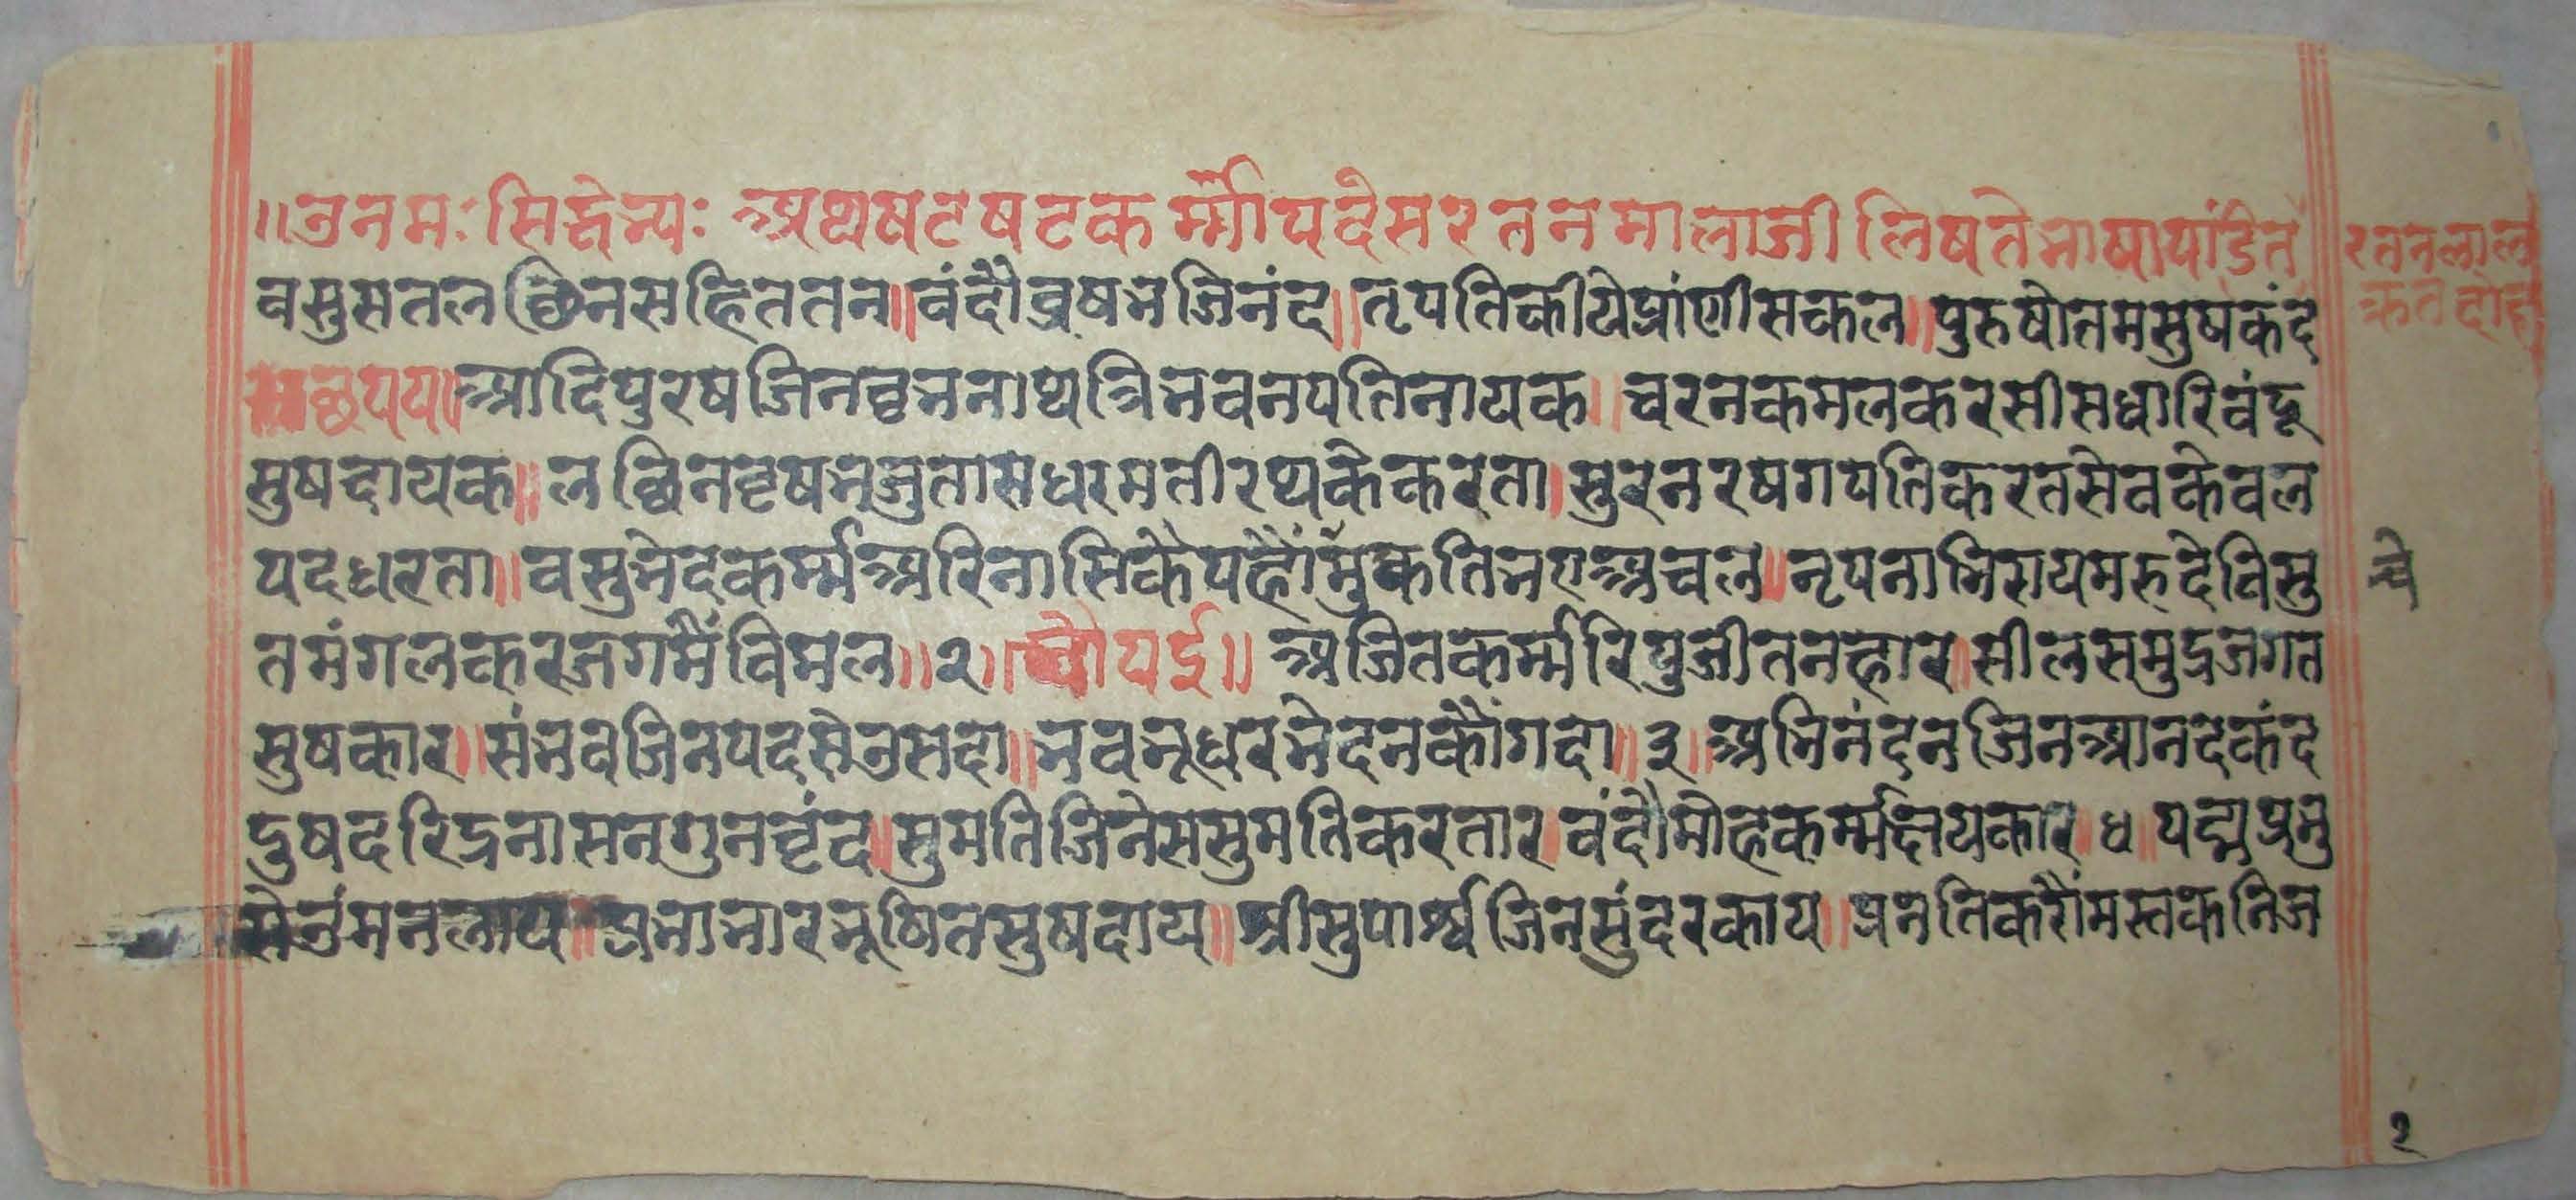 ॥उनमः सिद्धेभ्यः अथषटषटकर्म्मोपदेसरतनमालाजी लिषतेभाषापंडित रतनलाल
क्रतदोहा
वसुसतलछिनसहिततन॥वंदौव्रषभजिनंद॥तृपतिकीयेप्रांणीसकल॥पुरुषोतमसुषकंद
छपय॥आदिपुरषजिनवृभनाथत्रिभवनपतिनायक॥चरनकमलकरसीसधारिवंदू
सुषदायक॥लछिनवृषभजुतासधरमतीरथकेकरता॥सुरनरषगपतिकरतसेवकेवल
पदधरता॥वसुभेदकर्म्मअरिनासिकैपहौंमुकतिभएअचल॥नृपनाभिरायमरुदेविसु
तमंगलकरजगमैंविमल॥२॥चौपई॥ अजितकर्म्मरिपुजीतनहार॥सीलसमुद्रजगत
सुषकार॥संभवजिनपदसेउसदा॥भवभूधरभेदनकौंगदा॥३॥अभिनंदनजिनआनदकंद
दुषदरिद्रनासनगुनवृंद॥सुमतिजिनेससुमतिकरतार॥वंदौमोहकर्म्मक्षयकार॥४॥पद्मप्रभु
सेउंमनलाय॥प्रभाभारभूषितसुषदाय॥श्रीसुपार्श्वजिनसुंदरकाय॥प्रनतिकरौंमस्तकनिज
२